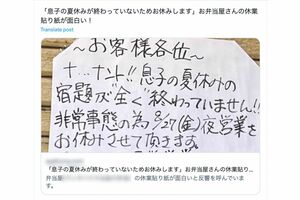 「息子の夏休みが終わっていないためお休みします」お弁当屋さんの休業
貼り紙が面白い！
Translate post
〜お客様各位〜
ナント!!息子の夏休みの
宿題が"全く"終わっていません!!
非常事態の為8/27(金)夜営業を
お休みさせて頂きます。
「息子の夏休みが終わっていないためお休みします」お弁当屋さんの休業貼り...
弁当屋
の休業貼り紙が面白いと反響を呼んでいま
す。